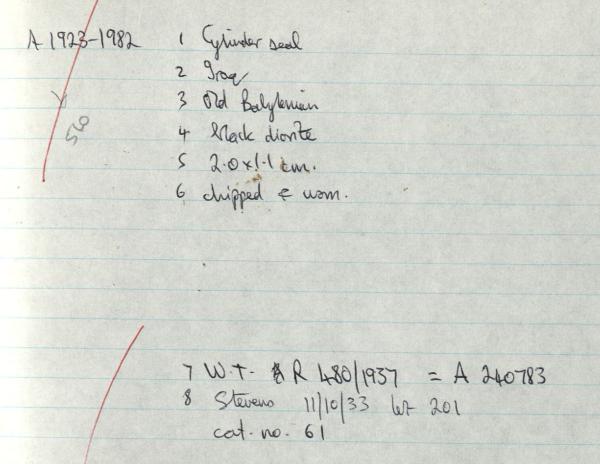 A 1923-1982 1 Cylinder seal
2 Iraq
3 Old Babylonian
4 black diorite
5 2.0 x 1.1 cm.
6 chipped & worn.
560
7 W.T. R 480/1937 = A 240783
8 Stevens 11/10/33 lot 201
cat. no. 61